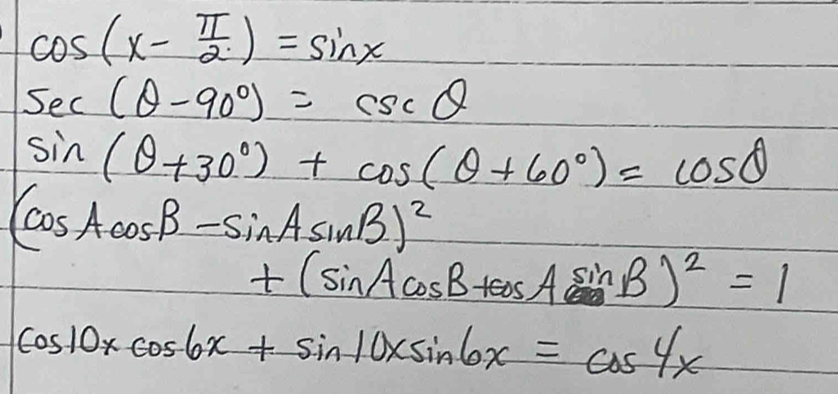 cos(x - π/2) = sinx
sec (θ - 90°) = csc θ
sin (θ + 30°) + cos(θ + 60°) = cosθ
(cos A cos B - sin A sin B)²
+ (sin A cos B + cos A sin B)² = 1
cos10x cos6x + sin10x sin6x = cos4x